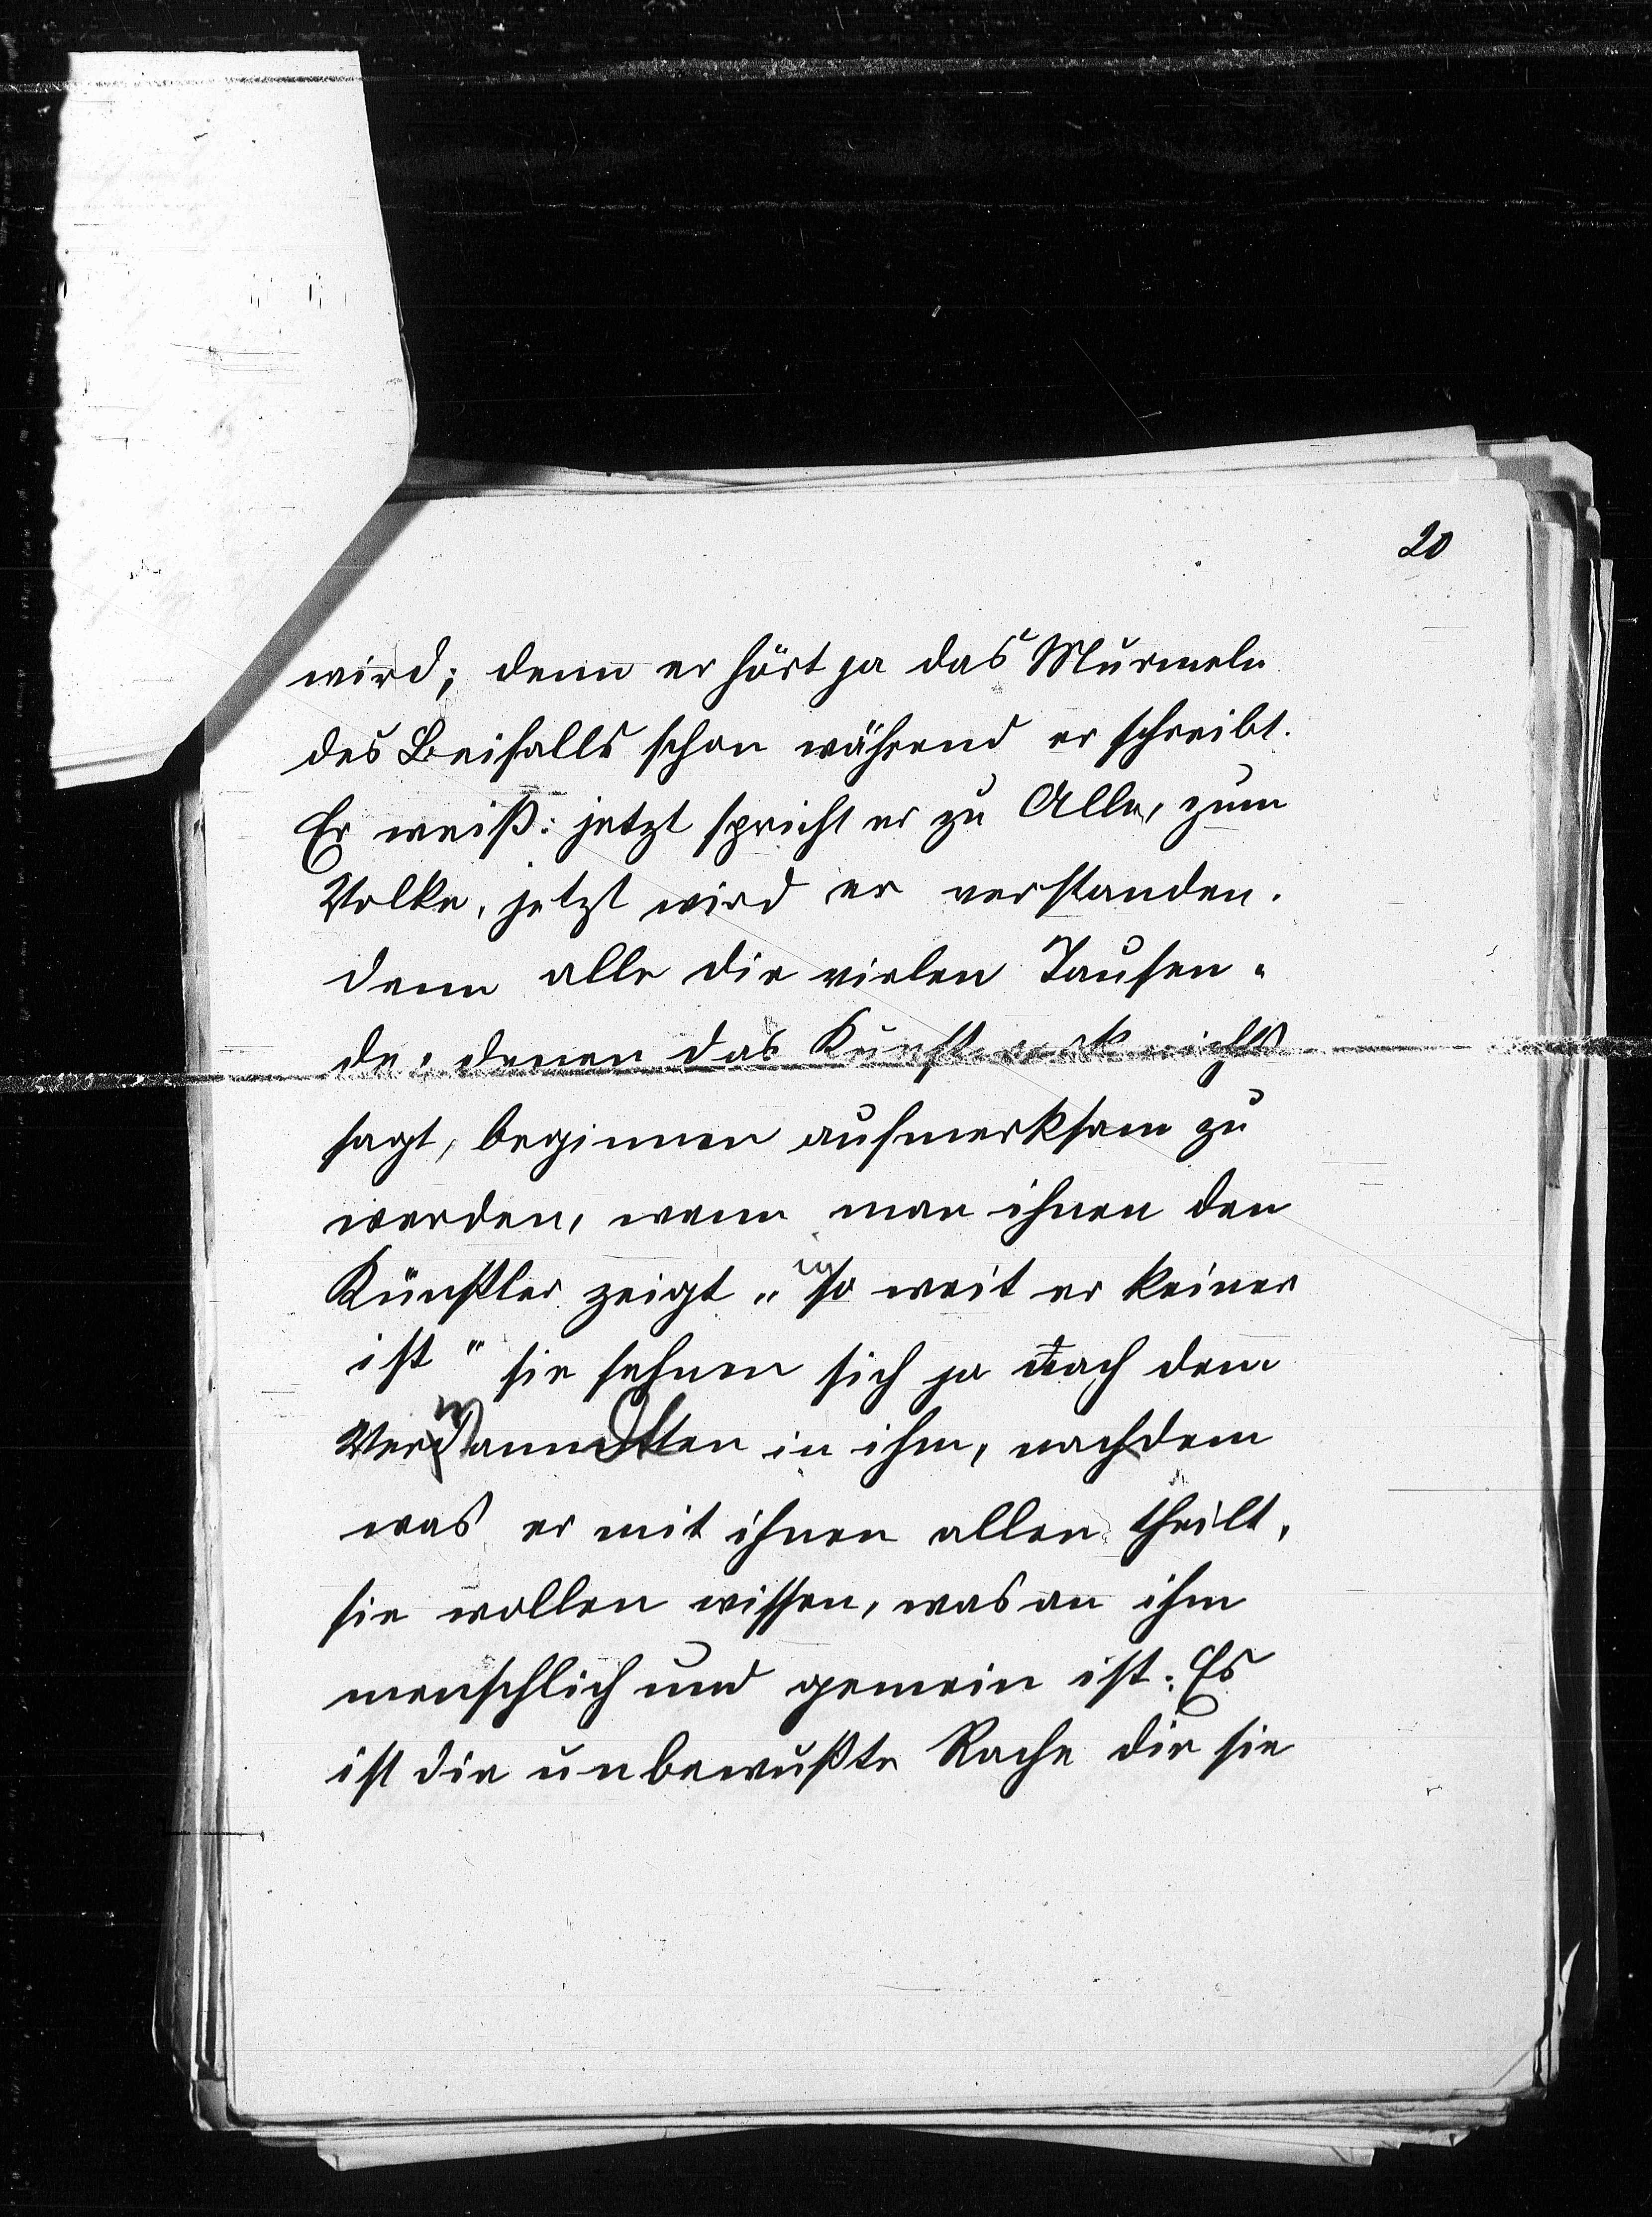 20
wird; denn er hört ja das Murmeln
des Beifalls schon während er schreibt.
Er weiß: jetzt spricht er zu Allen, zum
Volke, jetzt wird er verstanden.
denn alle die vielen Tausen-
de, denen das Kunstwerk nichts
sagt, beginnen aufmerksam zu
werden, wenn man ihnen den
Künstler zeigt „in so weit er keiner
ist" sie sehnen sich ja nach dem
Verwandten in ihm, nach dem
was er mit ihnen allen theilt,
sie wollen wissen, was an ihm
menschlich und gemein ist. Es
ist die unbewußte Rache die sie